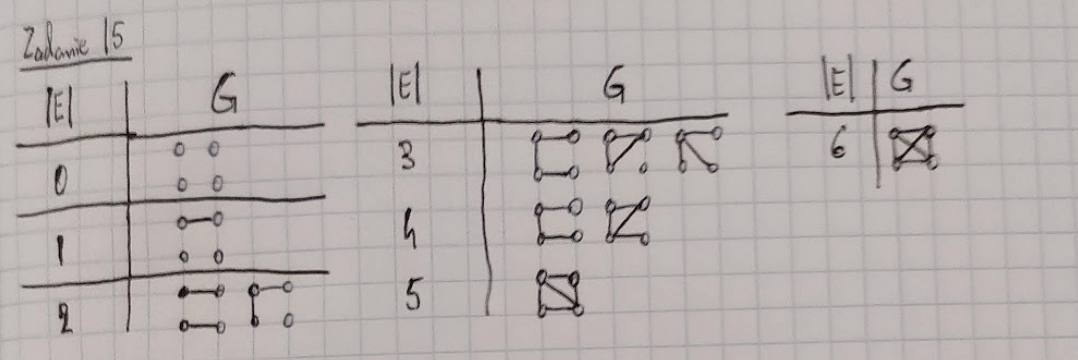 Zadanie 15
|E| G
0
1
2
|E| G
3
4
5
|E| G
6